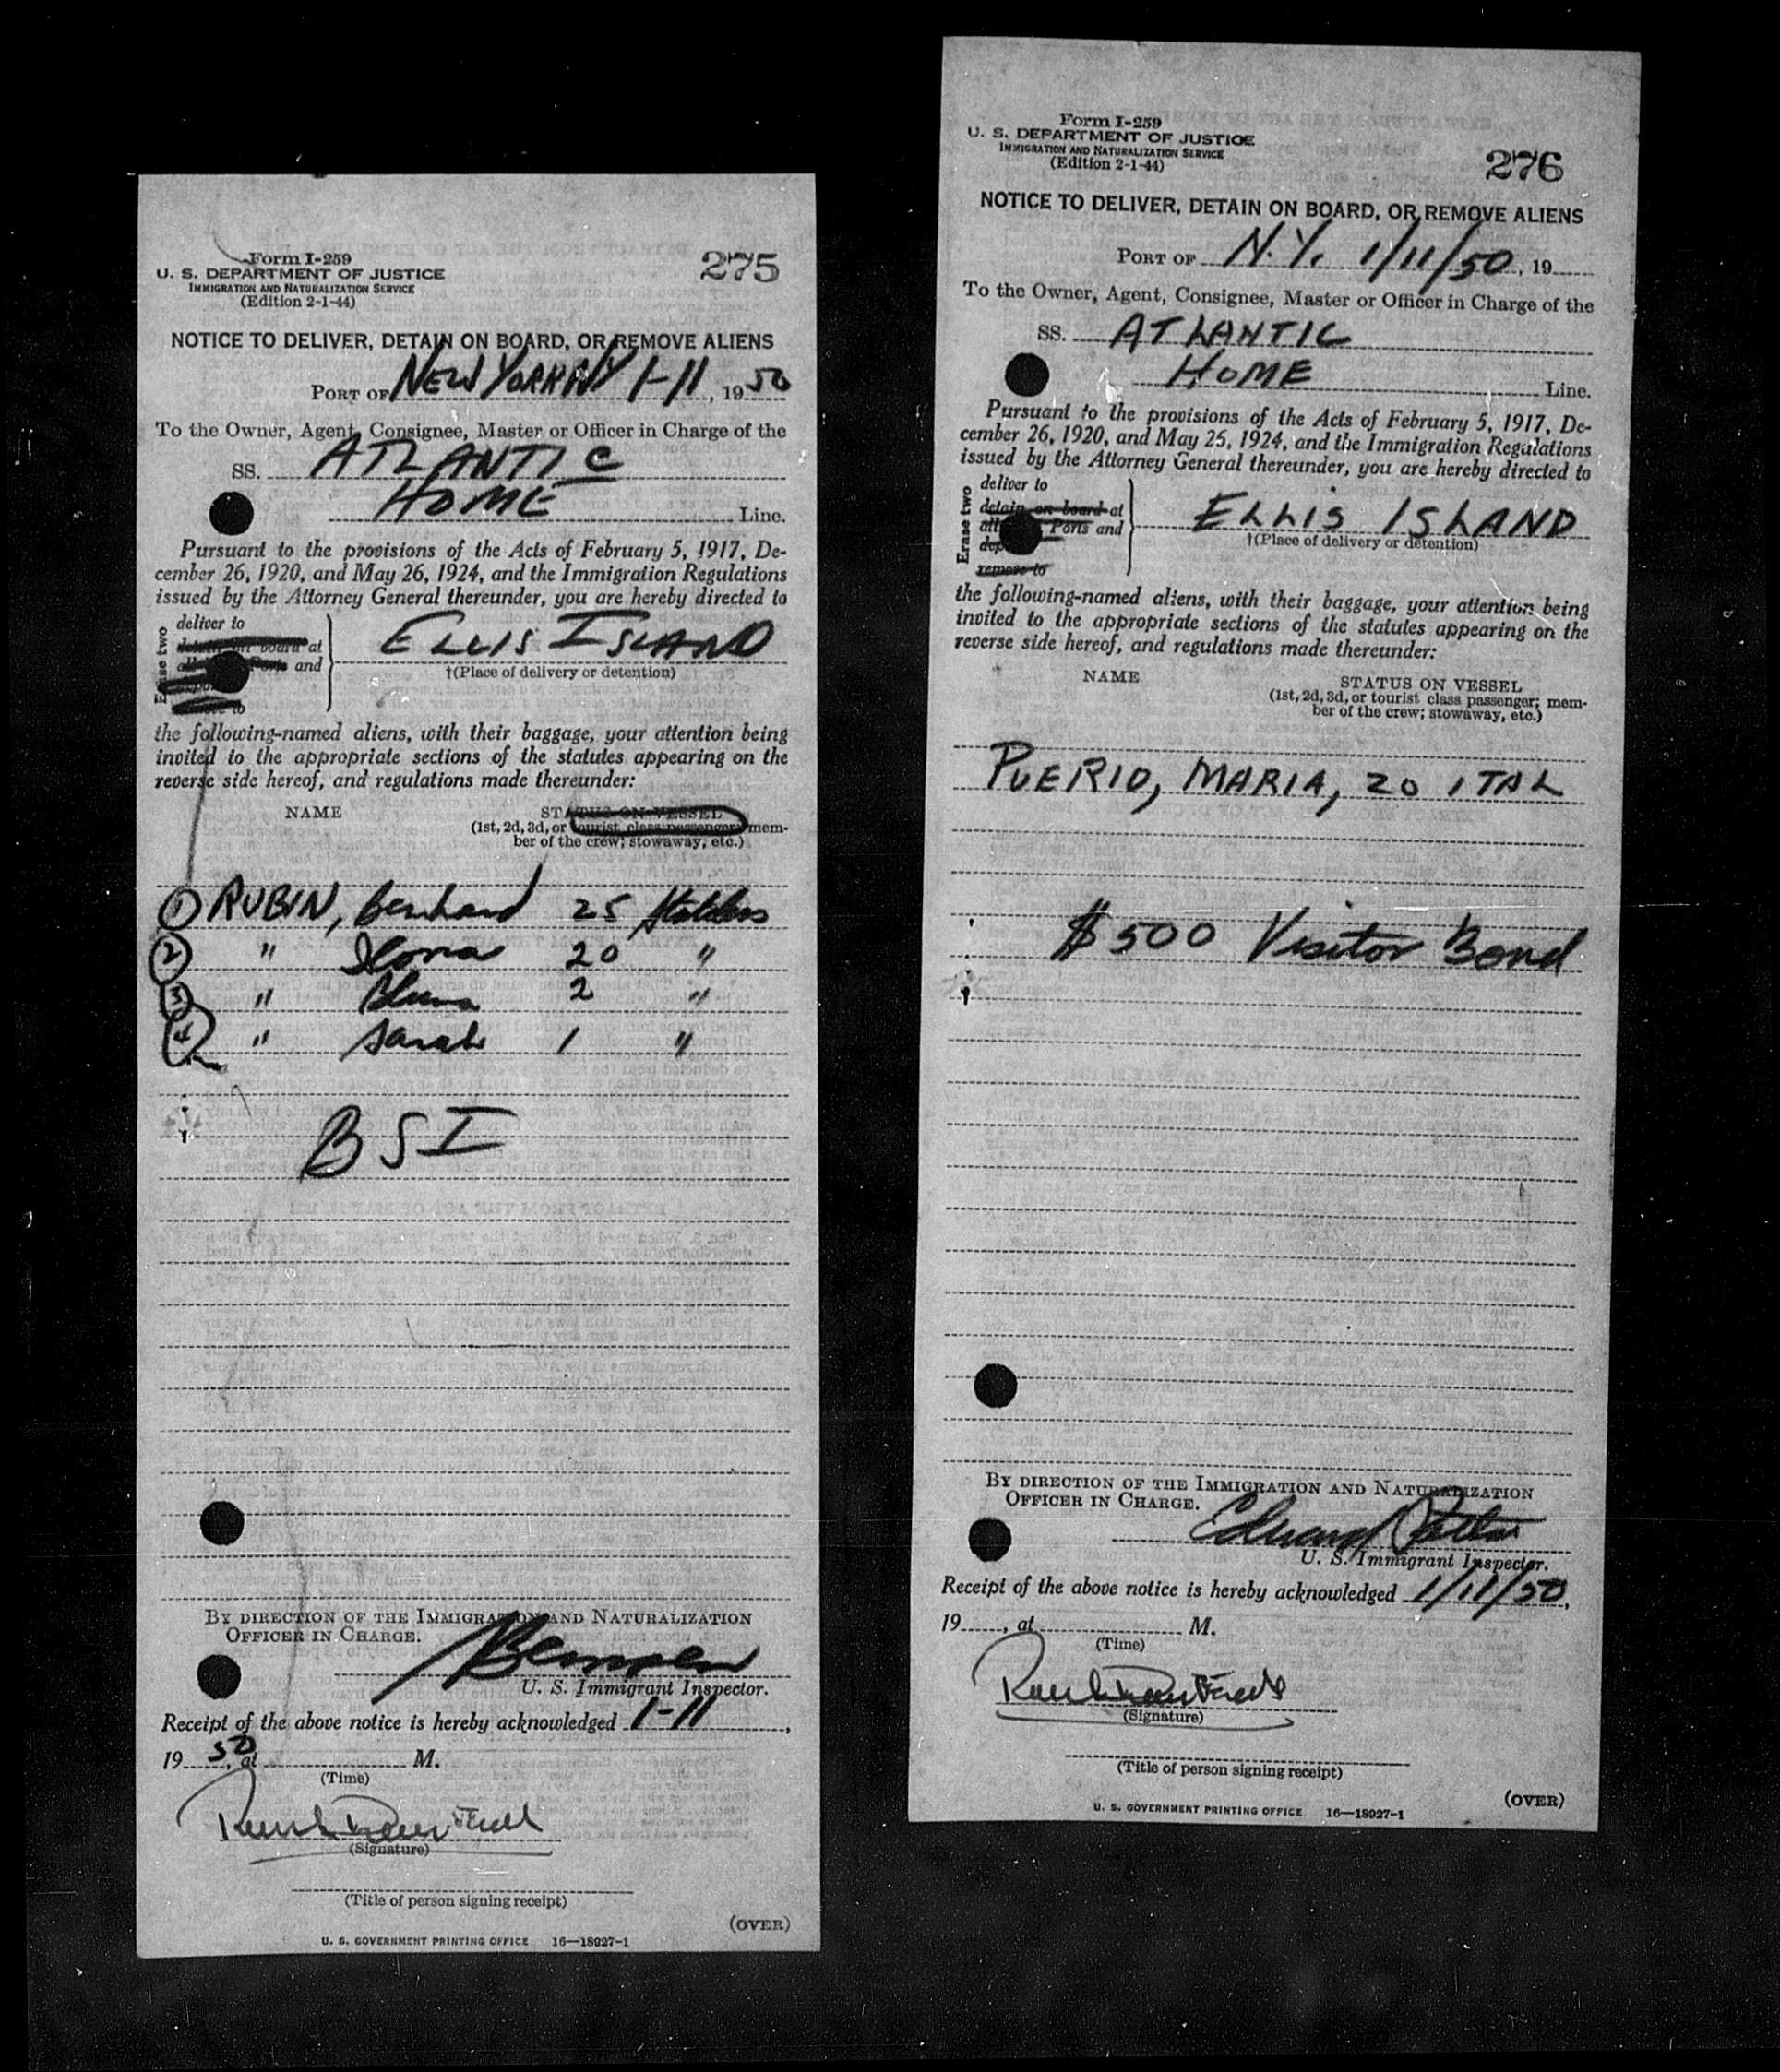 Form I-259
U. S. DEPARTMENT OF JUSTICE
IMMIGRATION AND NATURALIZATION SERVICE
(Edition 2-1-44)
275
NOTICE TO DELIVER, DETAIN ON BOARD, OR REMOVE ALIENS
PORT OF NEW YORK NY 1-11, 1950
To the Owner, Agent, Consignee, Master or Officer in Charge of the
SS. ATLANTIC
HOME Line.
Pursuant to the provisions of the Acts of February 5, 1917, De-
cember 26, 1920, and May 26, 1924, and the Immigration Regulations
issued by the Attorney General thereunder, you are hereby directed to
Erase two
deliver to
detain on board at
Ports and
to
ELLIS ISLAND
†(Place of delivery or detention)
the following-named aliens, with their baggage, your attention being
invited to the appropriate sections of the statutes appearing on the
reverse side hereof, and regulations made thereunder:
NAME STATUS ON VESSEL
(1st, 2d, 3d, or tourist class passenger; mem-
ber of the crew; stowaway, etc.)
1 RUBIN, Bernhard 25
2 " Ilona 20 "
3 " Bluma 2 "
4 " Sarah 1 "
BSI
BY DIRECTION OF THE IMMIGRATION AND NATURALIZATION
OFFICER IN CHARGE.
U. S. Immigrant Inspector.
Receipt of the above notice is hereby acknowledged 1-11,
1950, at M.
(Time)
(Signature)
(Title of person signing receipt)
(OVER)
U. S. GOVERNMENT PRINTING OFFICE 16—18927-1
Form I-259
U. S. DEPARTMENT OF JUSTICE
IMMIGRATION AND NATURALIZATION SERVICE
(Edition 2-1-44)
276
NOTICE TO DELIVER, DETAIN ON BOARD, OR REMOVE ALIENS
PORT OF N.Y. 1/11/50, 19
To the Owner, Agent, Consignee, Master or Officer in Charge of the
SS. ATLANTIC
HOME Line.
Pursuant to the provisions of the Acts of February 5, 1917, De-
cember 26, 1920, and May 25, 1924, and the Immigration Regulations
issued by the Attorney General thereunder, you are hereby directed to
Erase two
deliver to
detain on board at
all Ports and
dep
remove to
ELLIS ISLAND
†(Place of delivery or detention)
the following-named aliens, with their baggage, your attention being
invited to the appropriate sections of the statutes appearing on the
reverse side hereof, and regulations made thereunder:
NAME STATUS ON VESSEL
(1st, 2d, 3d, or tourist class passenger; mem-
ber of the crew; stowaway, etc.)
PUERIO, MARIA, 20 ITAL
$500 Visitor Bond
BY DIRECTION OF THE IMMIGRATION AND NATURALIZATION
OFFICER IN CHARGE.
Edward
U. S. Immigrant Inspector.
Receipt of the above notice is hereby acknowledged 1/11/50,
19, at M.
(Time)
(Signature)
(Title of person signing receipt)
(OVER)
U. S. GOVERNMENT PRINTING OFFICE 16—18927-1